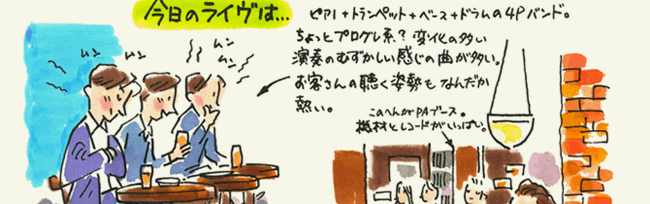 今日のライヴは...
ピアノ+トランペット+ベース+ドラムの4Pバンド。
ちょっとプログレ系?変化の多い
演奏のむずかしい感じの曲が多い。
お客さんの聴く姿勢もなんだか
熱い。
ムン
ムン
ムン
このへんがPAブース。
機材とレコードがいっぱい。